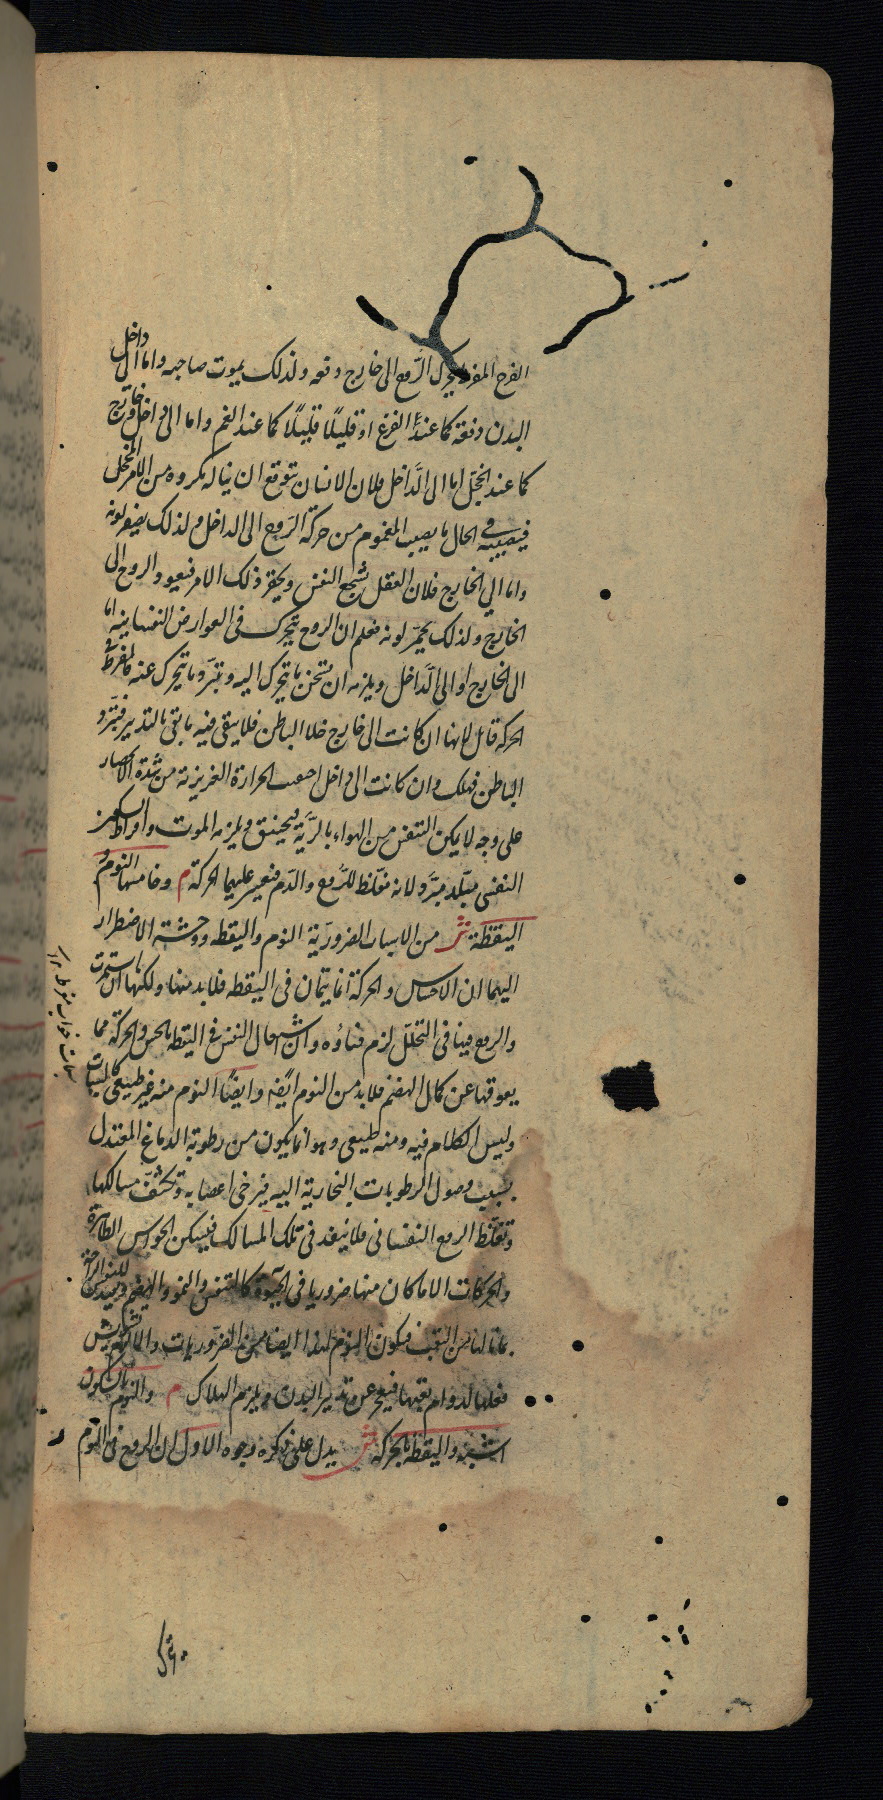 الفرح المفرط يحرك الروح الى خارج دفعه ولذلك يموت صاحبه واما الى داخل
البدن دفعة كما عند الفزع او قليلًا قليلًا كما عند الغم واما الى داخل وخارج
كما عند الخجل اما الى الدَّاخل فلان الانسان يتوقع ان يناله مكروه من الامر المخجل
فيصيبه فى الحال ما يصيب المغموم من حركة الرّوح الى الداخل ولذلك يصفر لونه
واما الي الخارج فلان العقل يشجع النفس ويحقر ذلك الامر فيعود الروح الى
الخارج ولذلك يحمّر لونه فعلم ان الروح يتحرك فى العوارض النفسانيه اما
الى الخارج او الى الدَّاخل ويلزمه ان يسخن ما يتحرك اليه ويتبرّد ما يتحرك عنه والمفرط
الحركه قاتل لانها ان كانت الى خارج خلا الباطن فلا يبقى فيه ما يقى بالتدبير فيتبرّد
الباطن فيهلك وان كانت الى داخل الحرارة الغريزية من شدة الانحصار
على وجه لا يمكن التنفس من الهواء بالريّة فيختنق ويلزمه الموت وافراط السكون
النفسى مبلّد مبرّد ولانه مغلّظ للرَّوح والدّم فيعسر عليهما الحركة م وخامسها النوم و
اليقظة ش من الاسباب الضروريّة النوم واليقظه ووجه الاضطرار
اليهما ان الاحساس والحركة انما يتمان فى اليقظه فلابد منها ولكنها ان استمرت
والروح فينا فى التحلّل لزم فناؤه وان اشتغال النفس فى اليقظه بالحس والحركة مما
يعوقها عن كمال الهضم فلابد من النوم ايضًا وايضًا النوم منه غير طبيعى كالسبات
وليس الكلام فيه ومنه طبيعى وهو انما يكون من رطوبة الدماغ المعتدل
بسبب وصول الرطوبات البخارية اليه فيرخى اعصابه وتكثّف مسالكها
وتغلّظ الروح النفسانى فلا ينفذ فى تلك المسالك فيسكن الحواس الظاهرة
والحركات الا ما كان منها ضروريا فى الحيوة كالتنفس والنمو والهضم
ما نالها من التعب فيكون النوم لهذا ايضا من الضروريات
فعلها لدوام تعبها فيعجز عن تدبير البدن ويلزم الهلاك م والنوم بالسكون
اشبه واليقظه بالحركه ش يدل على ذكره وجوه الاول ان الروح فى النوم
سبات خواب مفرط ١٢